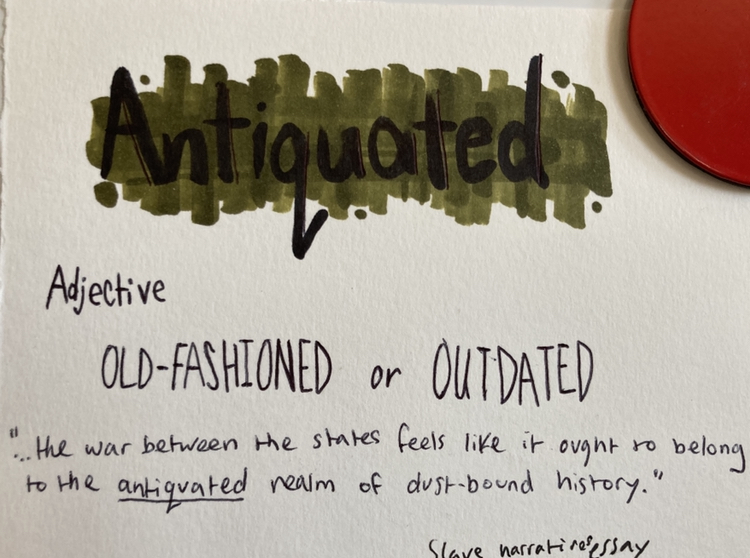 Antiquated
Adjective
OLD-FASHIONED or OUTDATED
"...the war between the states feels like it ought to belong
to the antiquated realm of dust-bound history."
Slave narratives essay